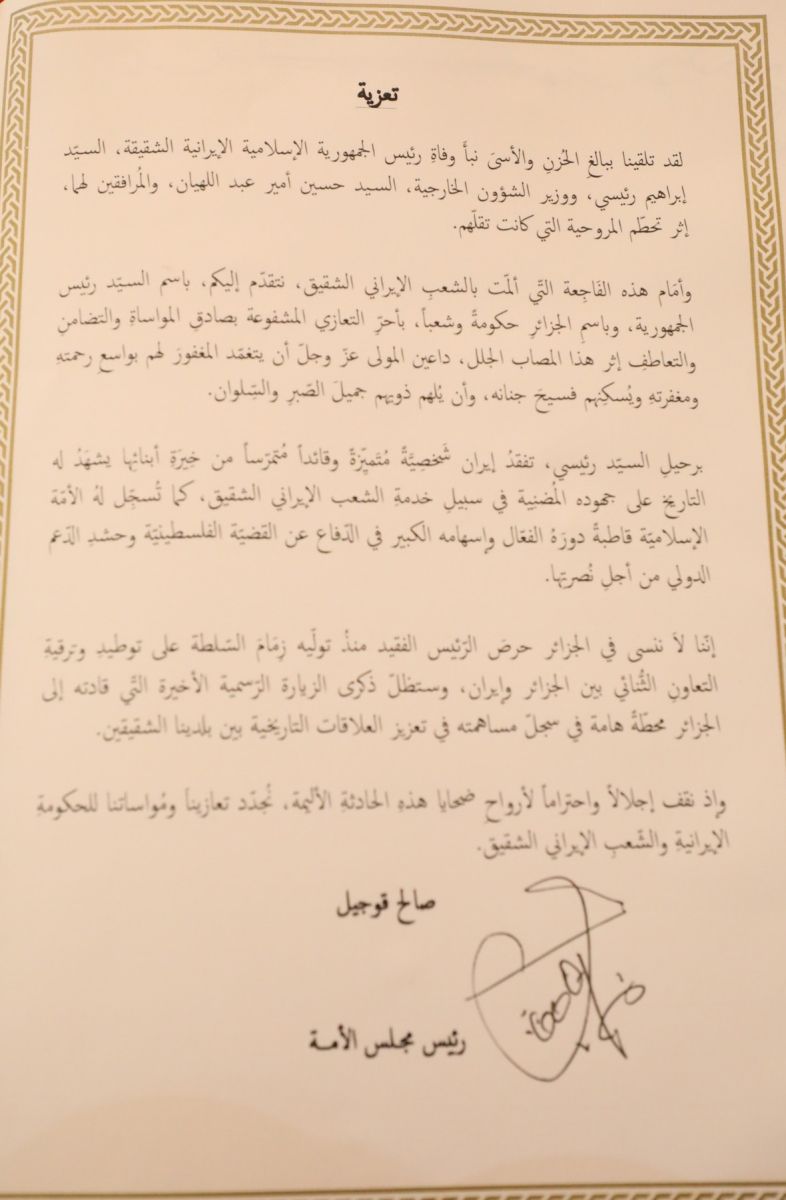 تعزية
لقد تلقينا ببالغِ الحُزنِ والأسىَ نبأَ وفاةِ رئيس الجمهورية الإسلامية الإيرانية الشقيقة، السيّد
إبراهيم رئيسي، ووزير الشؤون الخارجية، السيد حسين أمير عبد اللهيان، والمُرافقين لهما،
إثر تحطّم المروحية التي كانت تقلّهم.
وأمَام هذه الفَاجِعة التَّي ألمّت بالشعبِ الإيراني الشقيق، نتقدّم إليكم، باسم السيّد رئيس
الجمهورية، وباسمِ الجزائرِ حكومةً وشعباً، بأحرِّ التعازي المشفوعة بصادقِ المواساةِ والتضامنِ
والتعاطفِ إثر هذا المصاب الجلل، داعين المولى عزّ وجلّ أن يتغمّد المغفورَ لهم بواسعِ رحمتهِ
ومغفرتهِ ويُسكِنهم فسيحَ جنانه، وأن يُلهم ذويهم جميلَ الصّبرِ والسِّلوان.
برحيلِ السيّد رئيسي، تفقدُ إيران شَخصِيَّةً مُتَميِّزةً وقائداً مُتمرّساً من خِيَرَةِ أبنائِها يشهَدُ له
التاريخ على جهوده المُضنِية في سبيلِ خدمةِ الشعب الإيراني الشقيق، كما تُسجّل لهُ الأمّة
الإسلاميّة قاطبةً دورَهُ الفعّال وإسهامه الكبير في الدّفاع عن القضيّة الفلسطينيّة وحشدِ الدّعم
الدولي من أجلِ نُصرتِها.
إنّنا لاَ ننسى في الجزائر حرصَ الرّئيس الفقيد منذُ تولّيه زِمَامَ السّلطة على توطيدِ وترقيةِ
التعاونِ الثُّنائي بين الجزائر وإيران، وستظلّ ذكرى الزيارة الرّسمية الأخيرة التَّي قادته إلى
الجزائر محطّةً هامة في سجلّ مساهمته في تعزيز العلاقات التاريخية بين بلدينا الشقيقين.
وإذ نقف إجلالاً واحتراماً لأرواحِ ضحايا هذهِ الحادثةِ الأليمة، نُجدّد تعازينا ومُواساتنا للحكومةِ
الإيرانيةِ والشّعبِ الإيراني الشقيق.
صالح قوجيل
رئيس مجلس الأمـة